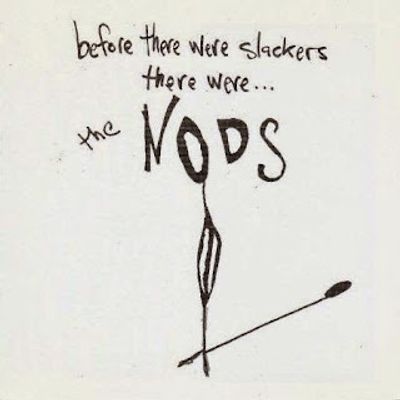 before there were slackers
there were...
the NODS